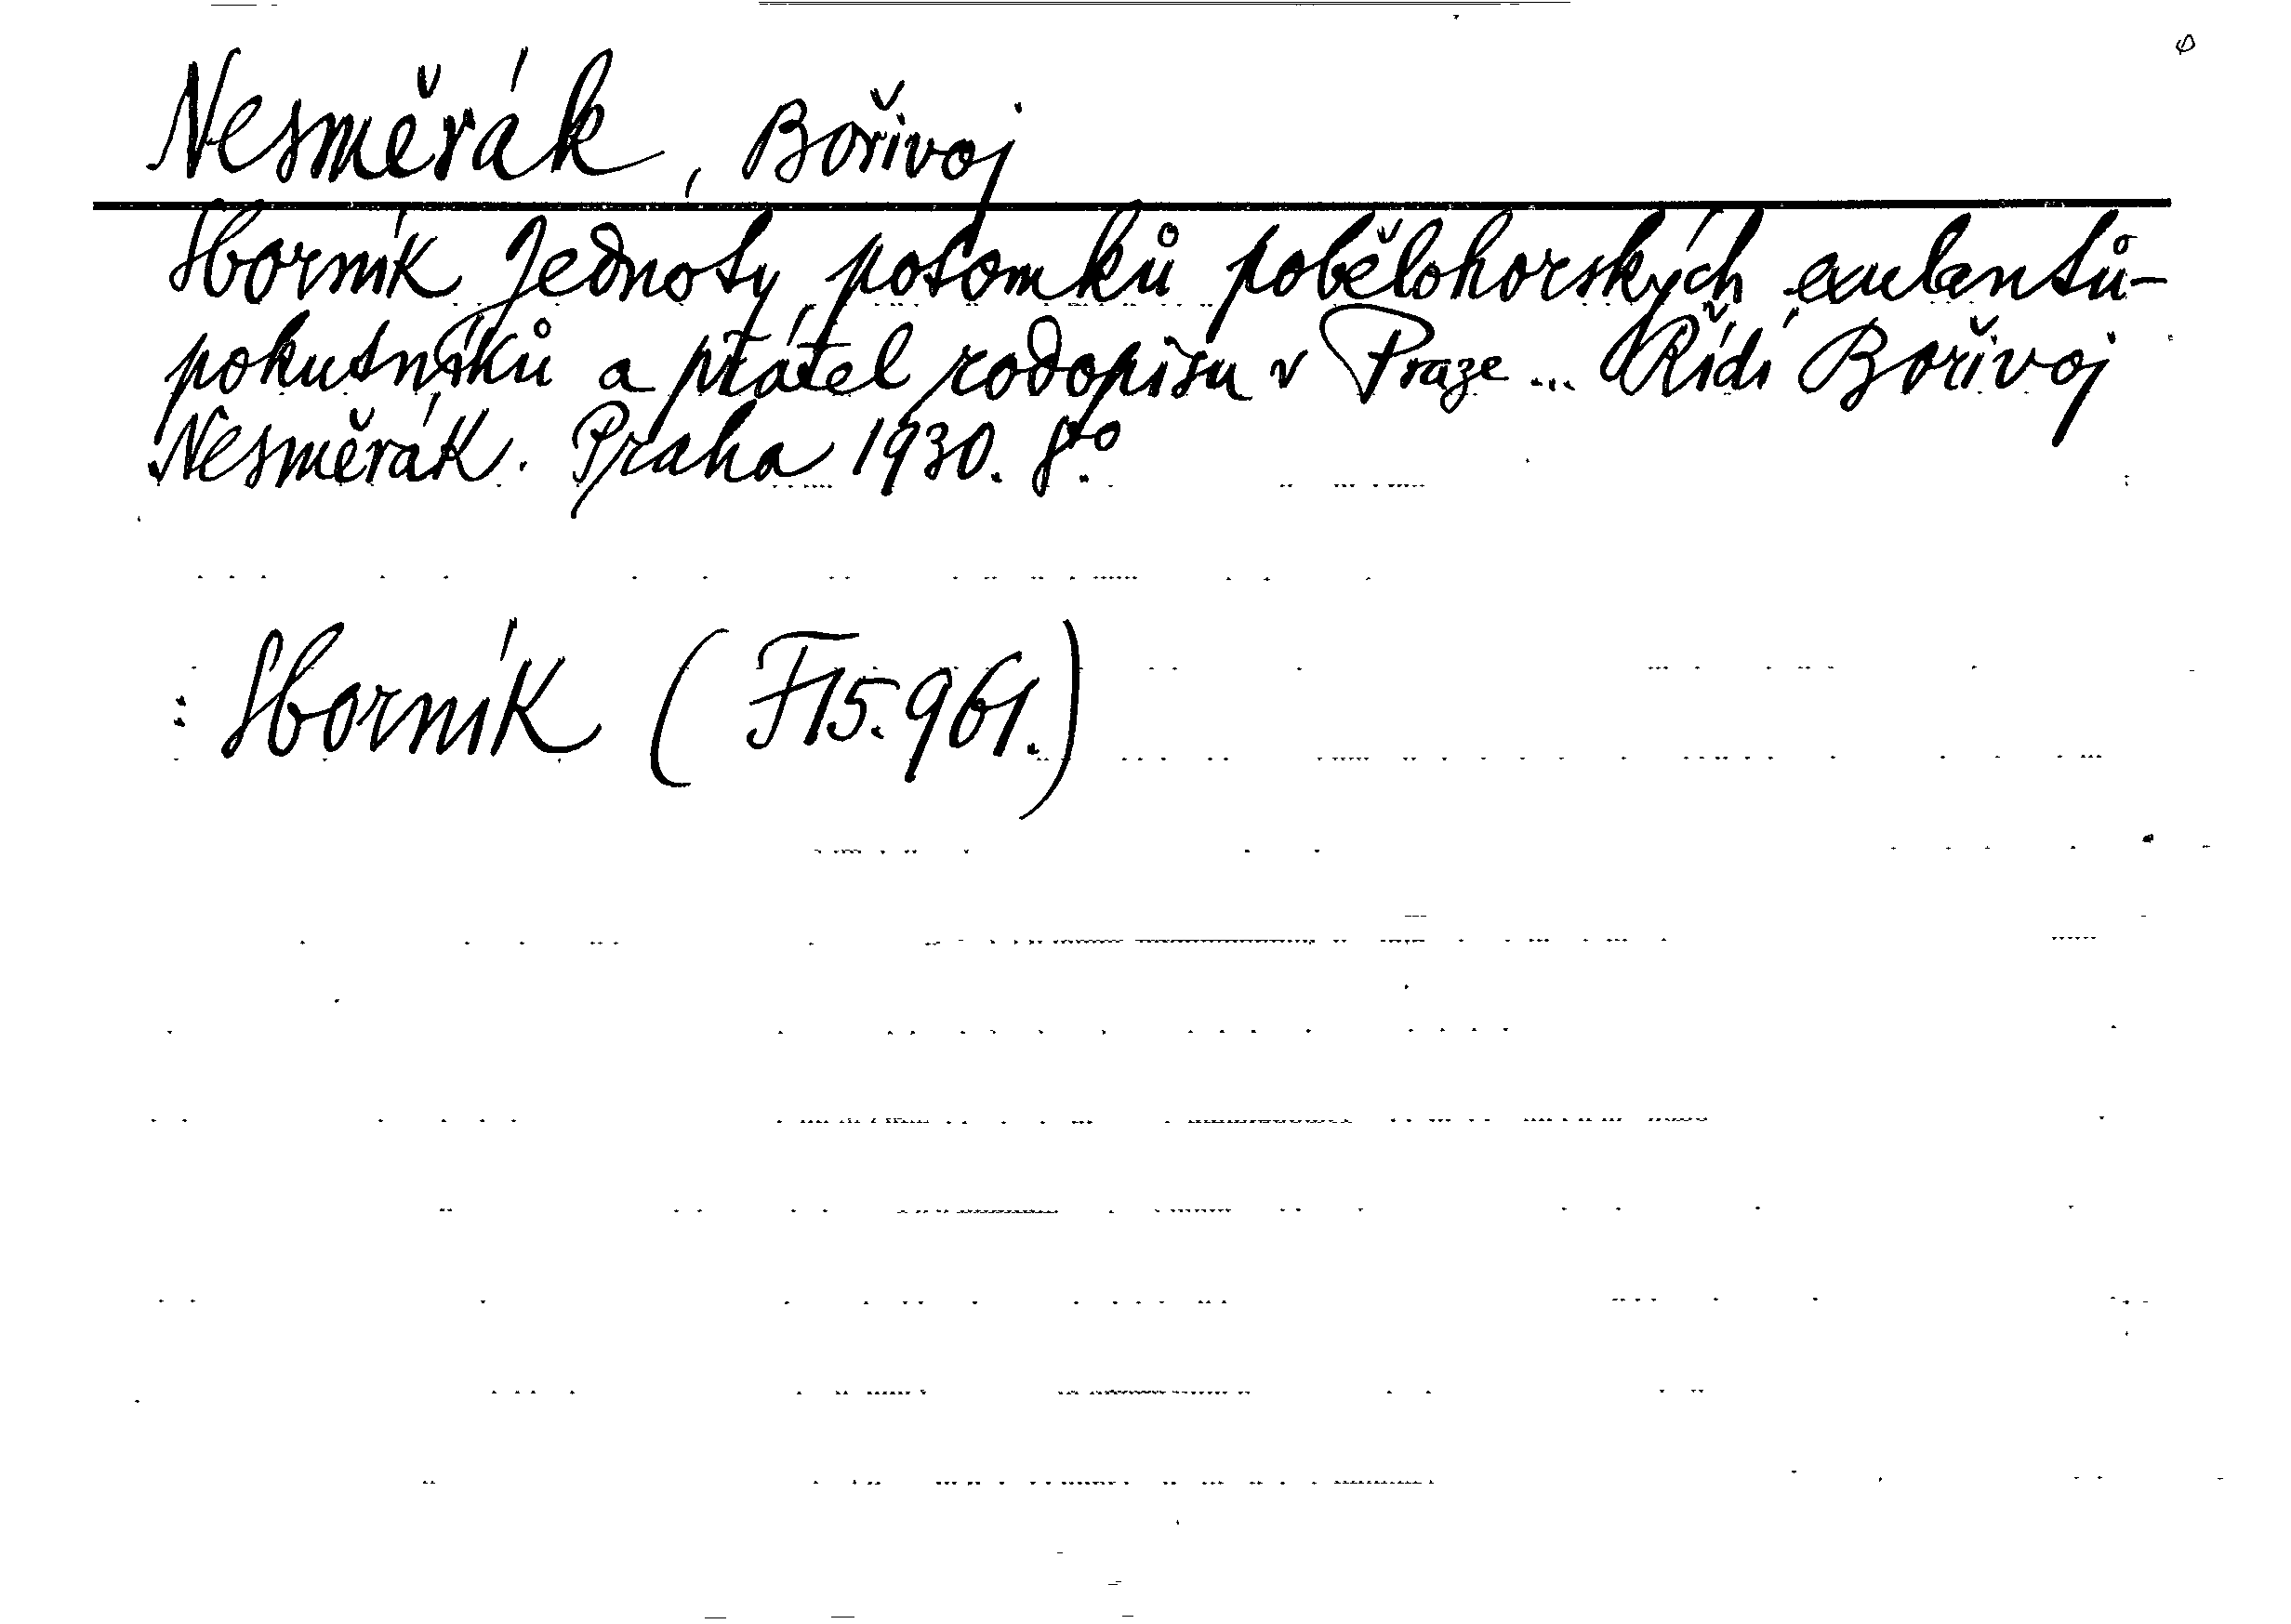 Nesměrák, Bořivoj
Sborník Jednoty potomků pobělohorských exulantů-
pokutníků a přátel rodopisu v Praze ... Řídí Bořivoj
Nesměrák. Praha 1930. 8to
: Sborník (F 15.961.)